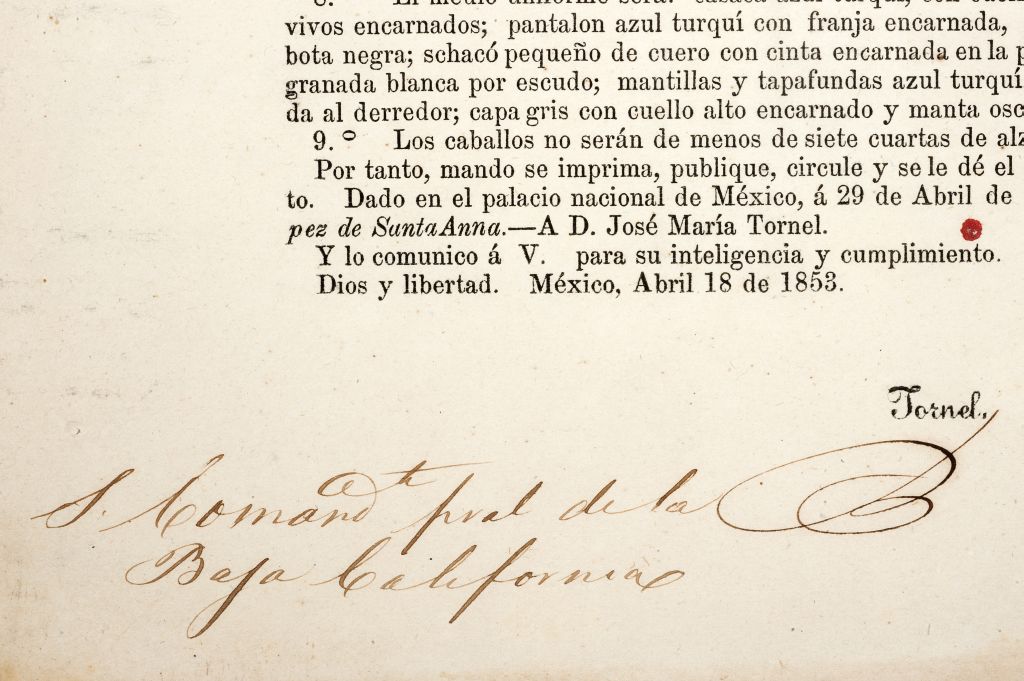 8. El medio uniforme será: casaca azul turquí, con
vivos encarnados; pantalon azul turquí con franja encarnada,
bota negra; schacó pequeño de cuero con cinta encarnada en la p
granada blanca por escudo; mantillas y tapafundas azul turquí
da al derredor; capa gris con cuello alto encarnado y manta osc
9.º Los caballos no serán de menos de siete cuartas de alz
Por tanto, mando se imprima, publique, circule y se le dé el
to. Dado en el palacio nacional de México, á 29 de Abril de
pez de Santa Anna.—A D. José María Tornel.
Y lo comunico á V. para su inteligencia y cumplimiento.
Dios y libertad. México, Abril 18 de 1853.
Tornel.
S. Comand^te pral de la
Baja California